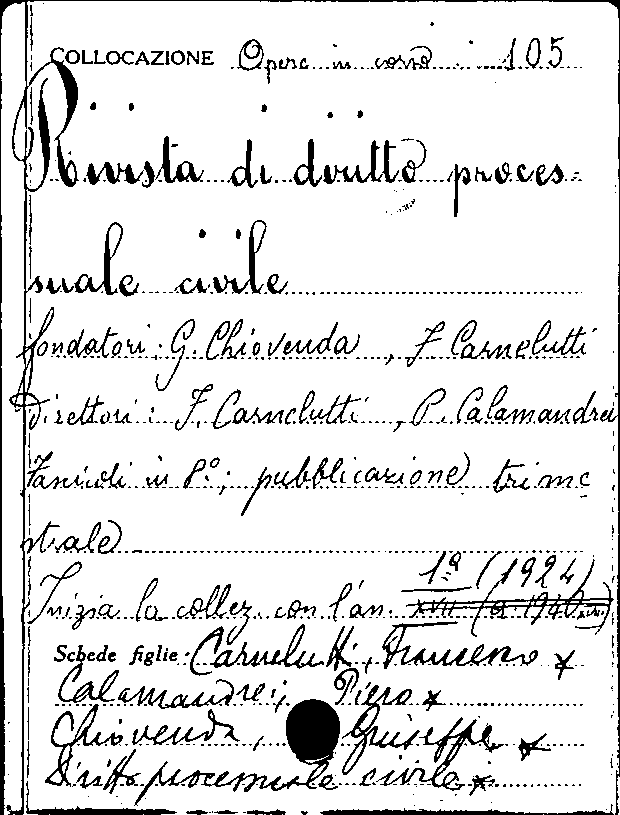 COLLOCAZIONE Opere in corso 105
Rivista di diritto proces=
suale civile
fondatori: G. Chiovenda, F. Carnelutti
Direttori: F. Carnelutti, P. Calamandrei
Fascicoli in 8°; pubblicazione trime
strale
1ª (1924)
Inizia la collez. con l'an. XVII (a. 1940 XVIII)
Schede figlie: Carnelutti, Francesco x
Calamandrei, Piero x
Chiovenda, Giuseppe x
Diritto processuale civile x